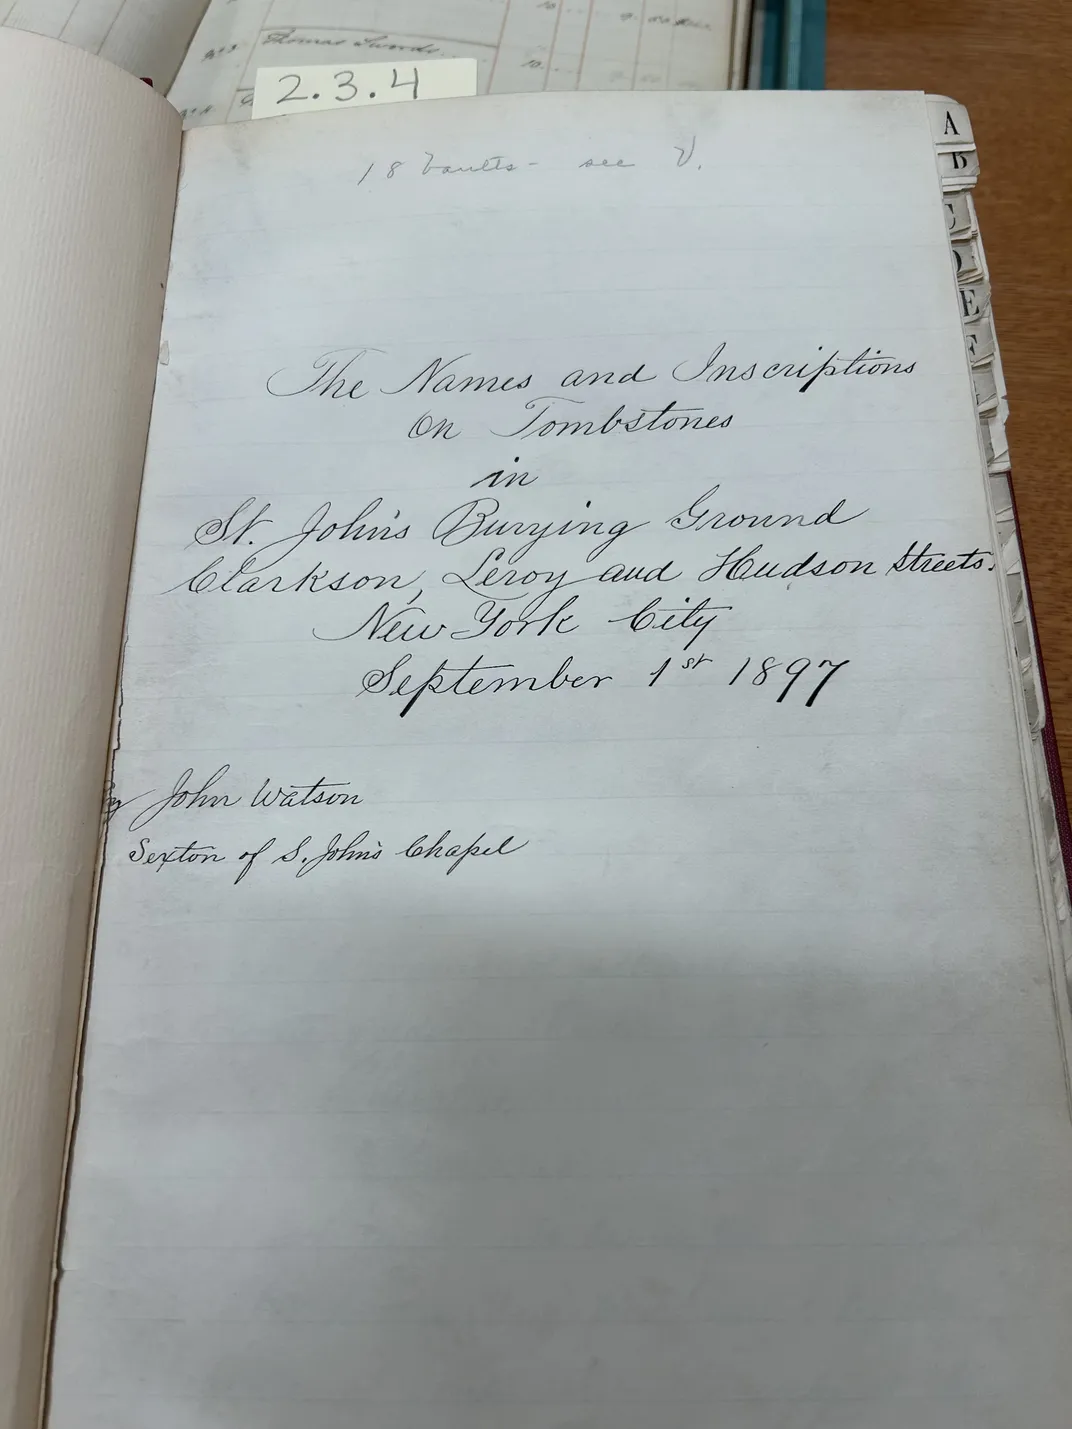 Thomas Swords
10
2.3.4
18 Vaults - see V.
The Names and Inscriptions
On Tombstones
in
St. John's Burying Ground
Clarkson, Leroy and Hudson Streets.
New York City
September 1st 1897
By John Watson
Sexton of S. John's Chapel
A
B
C
D
E
F